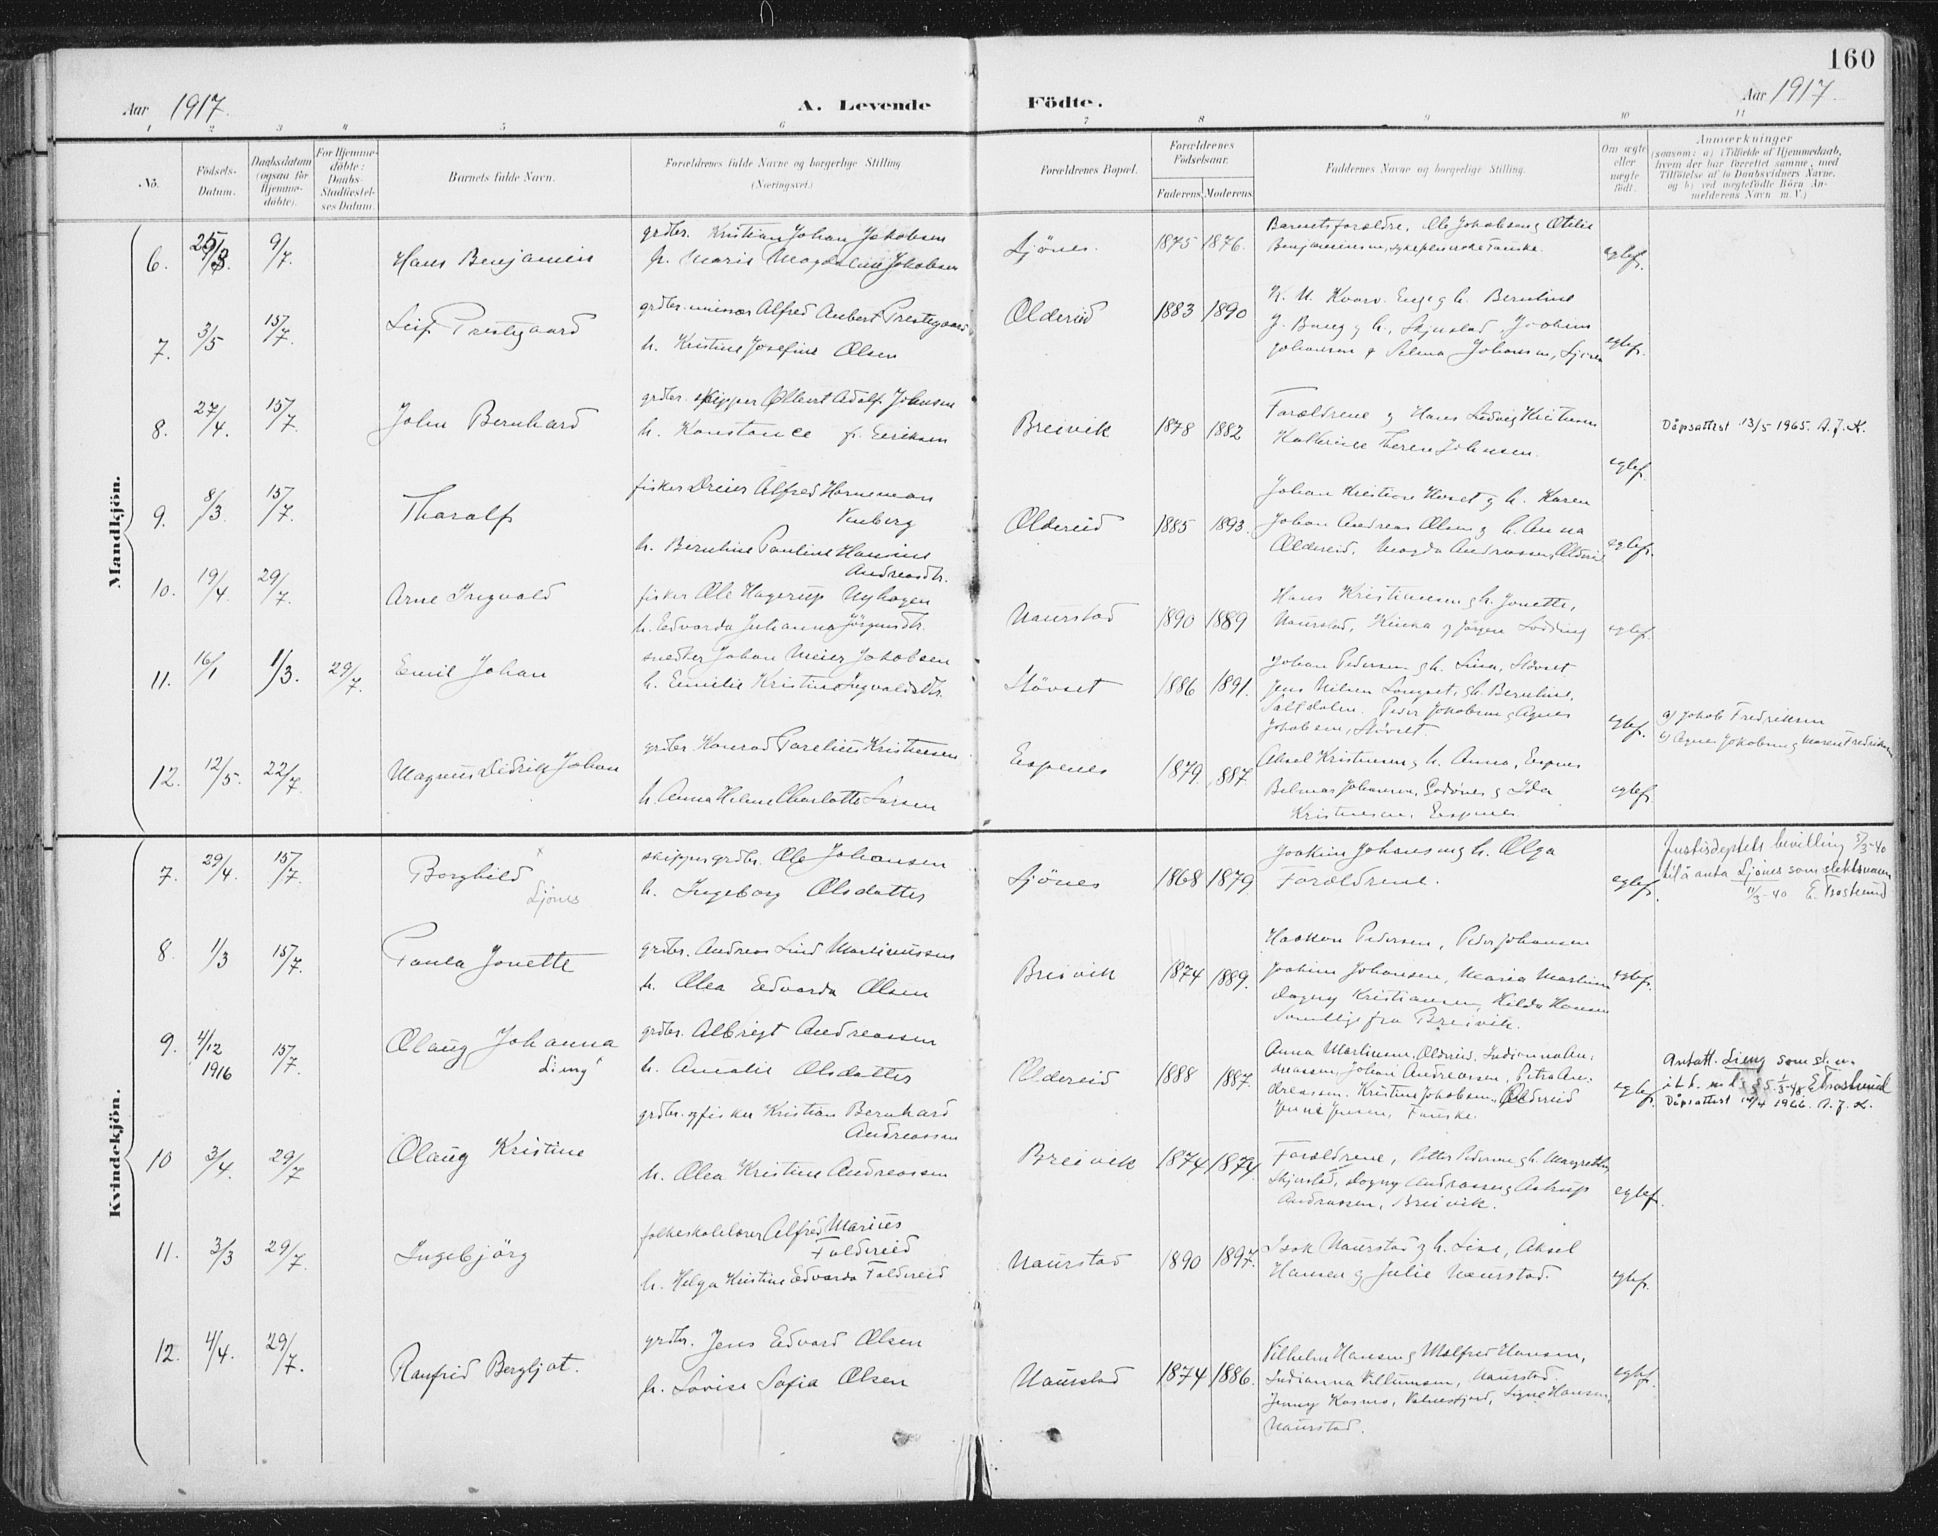 160
Aar 1917.
A. Levende
Födte.
Aar 1917.
1 2 3 4 5 6 7 8 9 10 11
No.
Födsels-Datum.
Daabsdatum (ogsaa for Hjemme-döbte).
For Hjemme-döbte: Daabs-Stadfæstel-ses Datum.
Barnets fulde Navn.
Forældrenes fulde Navne og borgerlige Stilling (Næringsvei.)
Forældrenes Bopæl.
Forældrenes Födselsaar.
Faderens. Moderens.
Faddernes Navne og borgerlige Stilling.
Om ægte eller uægte födt.
Anmærkninger
(saasom: a) i Tilfælde af Hjemmedaab, hvem der har forrettet samme, med Tilföielse af to Daabsvidners Navne, og b) ved uægtefödte Börn An-melderens Navn m. V.)
Mandkjön.
6. 25/3. 9/7. Hans Benjamin
grdbr. Kristian Johan Jakobsen
h. Marie Magdaline Jakobsen
Ljönes. 1875 1876.
Barnets forældre, Ole Jakobsen g Otelie
egtef.
7. 3/5 15/7. Leif Prestegaard
Alfred Anbert Prestegaard
h. Kristine Josefine Olsen
Oldereid 1883 1890
Johansen g Selma Johansen, Ljönes
egtef.
8. 27/4. 15/7. John Bernhard
grdbr. skipper Albert Adolf Johnsen
h. Konstance f. Eriksen
Breivik 1878 1882
Forældrene g Hans Ludvig
Johnsen.
egtef.
Dåpsattest 13/5 1965. A.J.K.
9. 8/3. 15/7. Tharalf
fisker Dreier Alfred Horneman
h. Berntine Pauline Hansine
Andreasdtr.
Oldereid 1885 1893.
g h. Karen
Johan Andreas Olsen g h. Anna
Oldereid, Magda Andreassen, Oldereid
egtef.
10. 19/4. 29/7. Arne Ingvald
fisker Ole Hagerup Nyhagen
h. Edvarda Johanna Jörgensdtr.
Naurstad 1890 1889
Hans Kristiansen g h. Jonette,
Naurstad, g Jörgen Lödding
egtef.
11. 16/1 1/3. 29/7. Emil Johan
Johan Meier Jakobsen
h. Emilie Kristine Ingvaldsdtr.
Stövset 1886 1891.
Johan Pedersen g h. Lina, Stövset
Jens Nilsen g h. Berntine,
Saltdalen. Peder Jakobsen g Agnes
Jakobsen, Stövset.
egtef.
a) Jakob Fredriksen
b) Agnes Jakobsen g Maren Fredriksen
12. 12/5. 22/7. Magnus Didrik Johan
grdbr. Konrad Parelius Kristensen
h. Anna Helene Charlotte Larsen
Espenes 1879. 1887.
Aksel Kristensen g h. Anna, Espnes
Johansen, Godönes g Ida
Kristensen, Espenes.
egtef.
Kvindekjön.
7. 29/4. 15/7. Borghild x
Ljönes
skipper grdbr. Ole Johansen
h. Ingeborg Olsdatter
Ljönes 1868 1879
Joakim Johansen g h. Olga
Forældrene.
egtef.
Justisdeptets bevilling 5/3-40
til å anta Ljönes som slektsnavn
11/3-40 E. Trostrud
8. 1/3 15/7. Paula Jonette
grdbr. Andreas Lind Martinussen
h. Olea Edvarda Olsen
Breivik 1874 1889.
Haakon Pedersen, Peder Johansen
Joakim Johansen, Maria
Dagny Kristiansen, Hilda Hansen
Samtlige fra Breivik.
egtef.
9. 4/12 1916 15/7. Olaug Johanna
"Limg"
grdbr. Albrigt Andreassen
h. Amalie Olsdatter
Oldereid 1888 1887.
Anna Martinsen, Oldereid, Indianna An-
dreassen, Johan Andreassen, Petra An-
dreassen. Kristine Jakobsen, Oldereid
Fauske.
egtef.
Antatt som
Dåpsattest 1966. A.J.K.
10 3/4. 29/7 Olaug Kristine
grdbr. og fisker Kristian Bernhard
Andreassen
h. Olea Kristine Andreassen
Breivik 1874 1874.
Forældrene, Petter Pedersen g h.
Skjerstad, Dagny Andreassen g Astrup
Andreassen, Breivik.
egtef.
11. 3/3 29/7. Ingebjörg
folkeskolelærer Alfred Marius
Foldereid
h. Helga Kristine Edvarda Foldereid
Naurstad 1890 1897.
Isak Naurstad g h. Lise, Aksel
Hansen g Julie Naurstad.
egtef.
12. 4/4. 29/7. Ranfrid Bergljot.
grdbr. Jens Edvard Olsen
h. Lovise Sofia Olsen
Naurstad 1874 1886.
Vilhelm Hansen g Alfred Hansen,
Indianna Villumsen, Naurstad,
Jenny Kosmo, Valnesfjord, Signe Hansen,
Naurstad.
egtef.